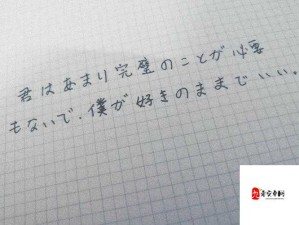 君はあまり完璧のことが必要
もないで、僕が好きのままでいい。